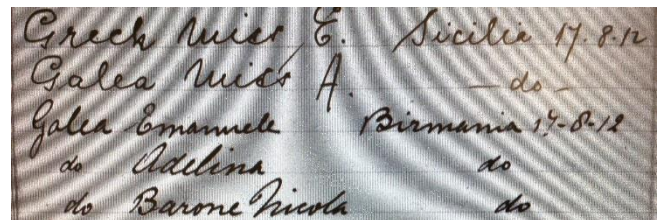 Grech Miss E. Sicilia 17.8.12
Galea Miss A. - do -
Galea Emanuele Birmania 17-8-12
do Adelina do
do Barone Nicola do